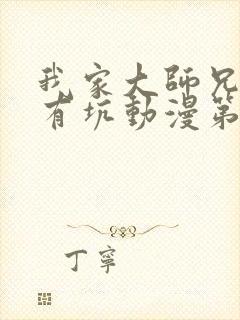 我家大師兄
有坑動漫第
丁寧